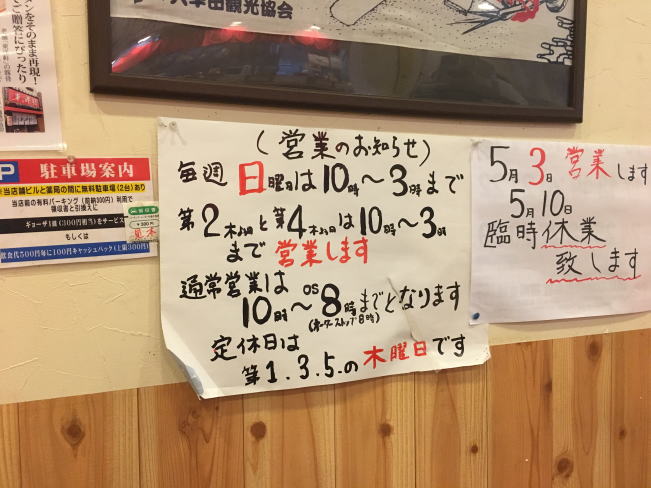 大牟田観光協会
ンをそのまま再現!
ご贈答にぴったり
P 駐車場案内
※当店舗ビルと薬局の間に無料駐車場(2台)あり
当店前の有料パーキング(前納300円)利用で
領収書と引換えに
ギョーザ1皿(300円相当)をサービス
もしくは
飲食代500円毎に100円キャッシュバック(上限300円)
見本
(営業のお知らせ)
毎週日曜日は10時〜3時まで
第2木曜日と第4木曜日は10時〜3時
まで営業します
通常営業は
10時〜OS8時までとなります
(オーダーストップ8時)
定休日は
第1.3.5.の木曜日です
5月3日営業します
5月10日
臨時休業
致します